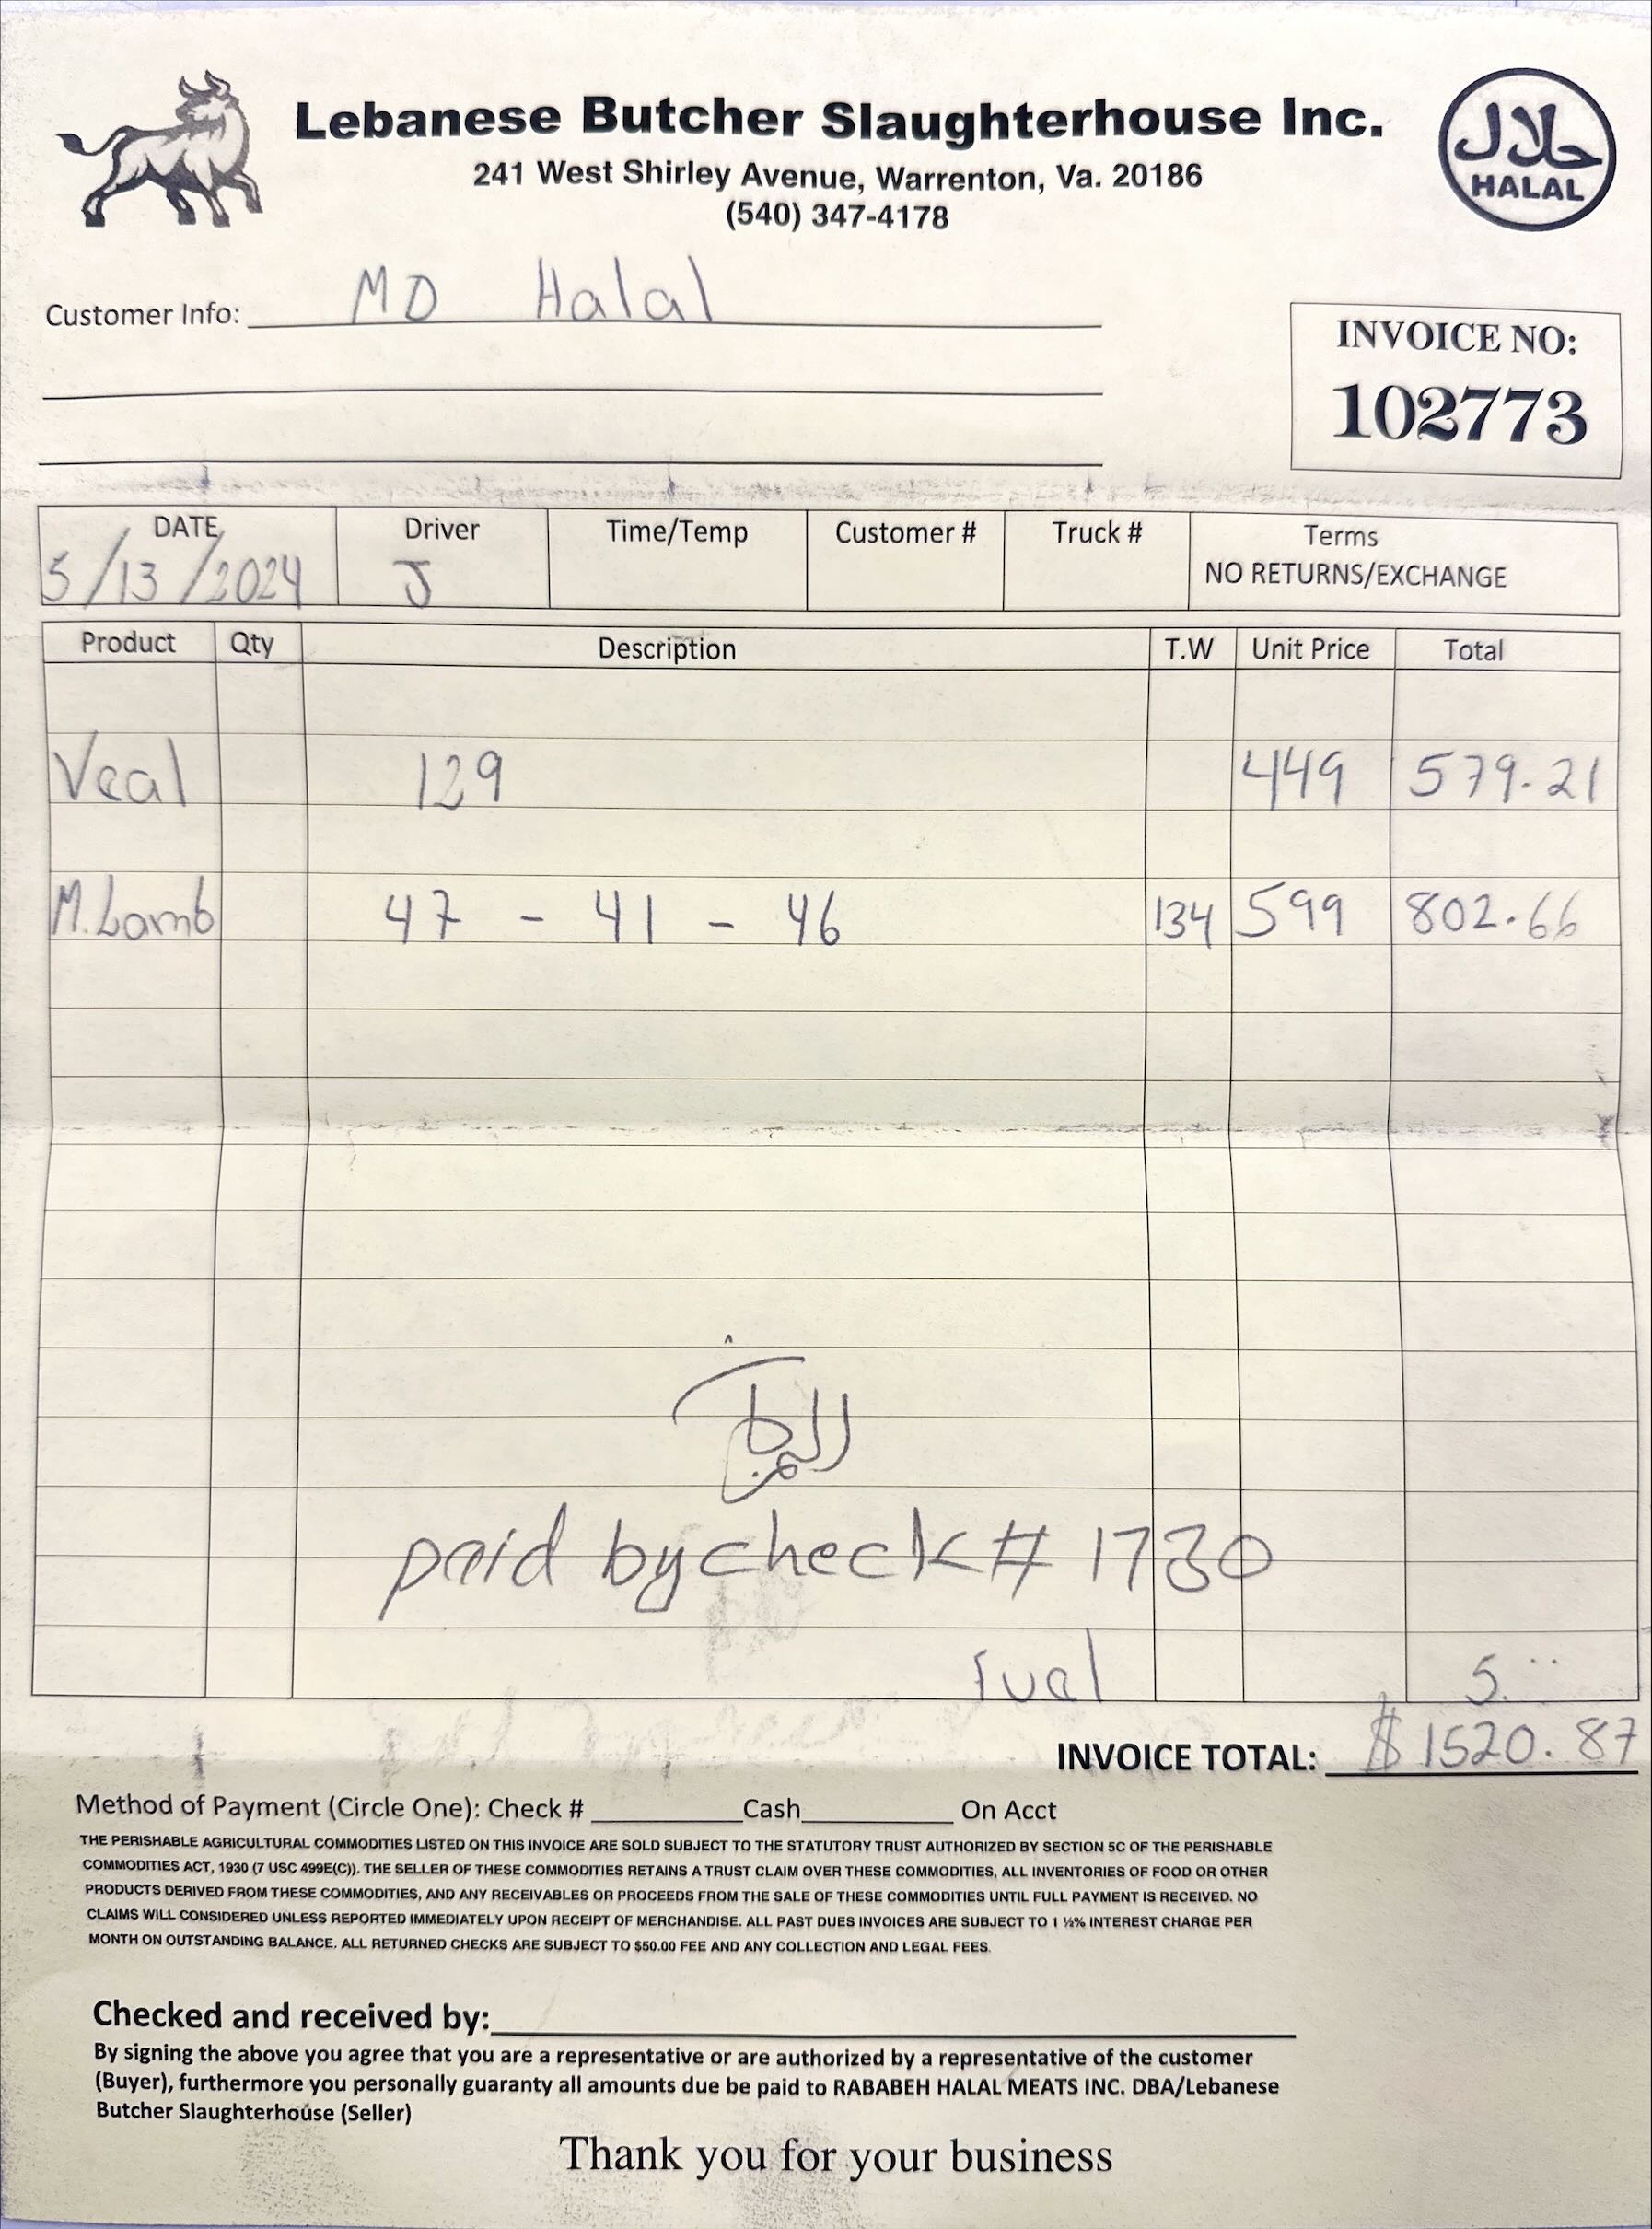 Lebanese Butcher Slaughterhouse Inc.
241 West Shirley Avenue, Warrenton, Va. 20186
(540) 347-4178
حلال
HALAL
Customer Info: MD Halal
INVOICE NO:
102773
DATE Driver Time/Temp Customer # Truck # Terms
5/13/2024 J NO RETURNS/EXCHANGE
Product Qty Description T.W Unit Price Total
Veal 129 449 579.21
M.Lamb 47 - 41 - 46 134 599 802.66
paid by check # 1730
Fual 5.
INVOICE TOTAL: $1520.87
Method of Payment (Circle One): Check # Cash On Acct
THE PERISHABLE AGRICULTURAL COMMODITIES LISTED ON THIS INVOICE ARE SOLD SUBJECT TO THE STATUTORY TRUST AUTHORIZED BY SECTION 5C OF THE PERISHABLE
COMMODITIES ACT, 1930 (7 USC 499E(C)). THE SELLER OF THESE COMMODITIES RETAINS A TRUST CLAIM OVER THESE COMMODITIES, ALL INVENTORIES OF FOOD OR OTHER
PRODUCTS DERIVED FROM THESE COMMODITIES, AND ANY RECEIVABLES OR PROCEEDS FROM THE SALE OF THESE COMMODITIES UNTIL FULL PAYMENT IS RECEIVED. NO
CLAIMS WILL CONSIDERED UNLESS REPORTED IMMEDIATELY UPON RECEIPT OF MERCHANDISE. ALL PAST DUES INVOICES ARE SUBJECT TO 1 ½% INTEREST CHARGE PER
MONTH ON OUTSTANDING BALANCE. ALL RETURNED CHECKS ARE SUBJECT TO $50.00 FEE AND ANY COLLECTION AND LEGAL FEES.
Checked and received by:
By signing the above you agree that you are a representative or are authorized by a representative of the customer
(Buyer), furthermore you personally guaranty all amounts due be paid to RABABEH HALAL MEATS INC. DBA/Lebanese
Butcher Slaughterhouse (Seller)
Thank you for your business